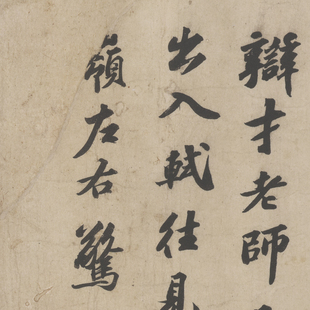 辯才老師
出入軾往見
嶺左右驚